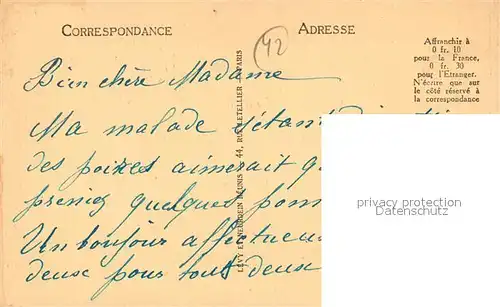 CORRESPONDANCE
ADRESSE
42
Affranchir à
0 fr. 10
pour la France,
0 fr. 30
pour l'Etranger.
N'écrire que sur
le côté réservé à
la correspondance
Bien chère Madame
Ma malade s'étant
des poires aimerait q
preniez quelques pom
Un bonjour affectueu
deux pour tout deux
LÉVY ET NEURDEIN RÉUNIS 44, RUE LETELLIER PARIS
privacy protection
Datenschutz